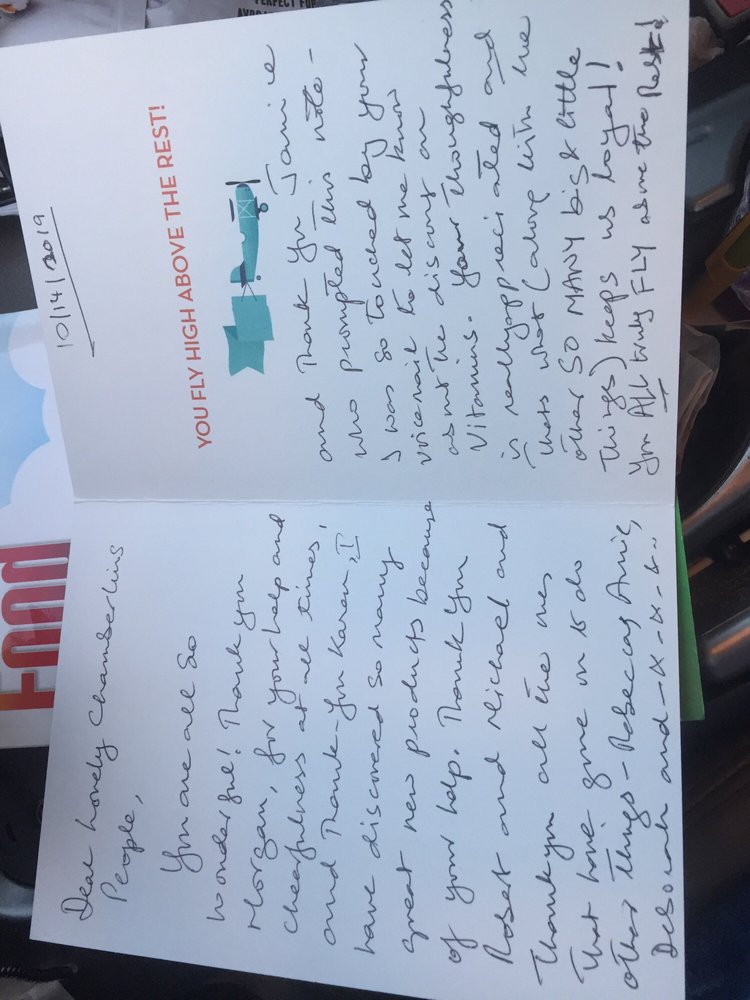 Dear lovely Chamberlins
People,
You are all so
wonderful! Thank you
Morgan, for your help and
cheerfulness at all times!
and Thank-you Karen, I
have discovered so many
great new products because
of your help. Thank you
Robert and Michael and
Thank you all the ones
that have gone on to do
other things - Rebecca, Amie,
Deborah and - x - x - x -
10/14/2019
YOU FLY HIGH ABOVE THE REST!
and Thank you Janice
who prompted this note -
I was so touched by your
voicemail to let me know
about the discount on
Vitamins. Your thoughtfulness
is really appreciated and
thats what (along with the
other SO MANY big & little
things) keeps us loyal!
You ALL truly FLY above the Rest!
FOOD
PERFECT FOR